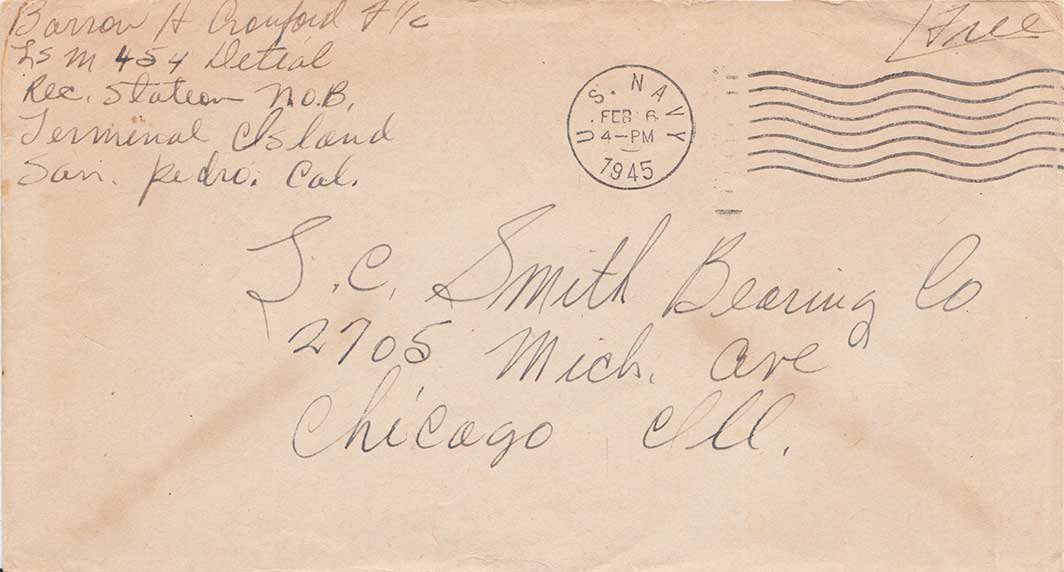 Barrow H Crawford F 1/c
LSM 454 Detial
Rec. Station N.O.B.
Terminal Island
San. Pedro. Cal.
Free
U.S. NAVY
FEB 6
4-PM
1945
S.C. Smith Bearing Co
2705 Mich. Ave
Chicago Ill.